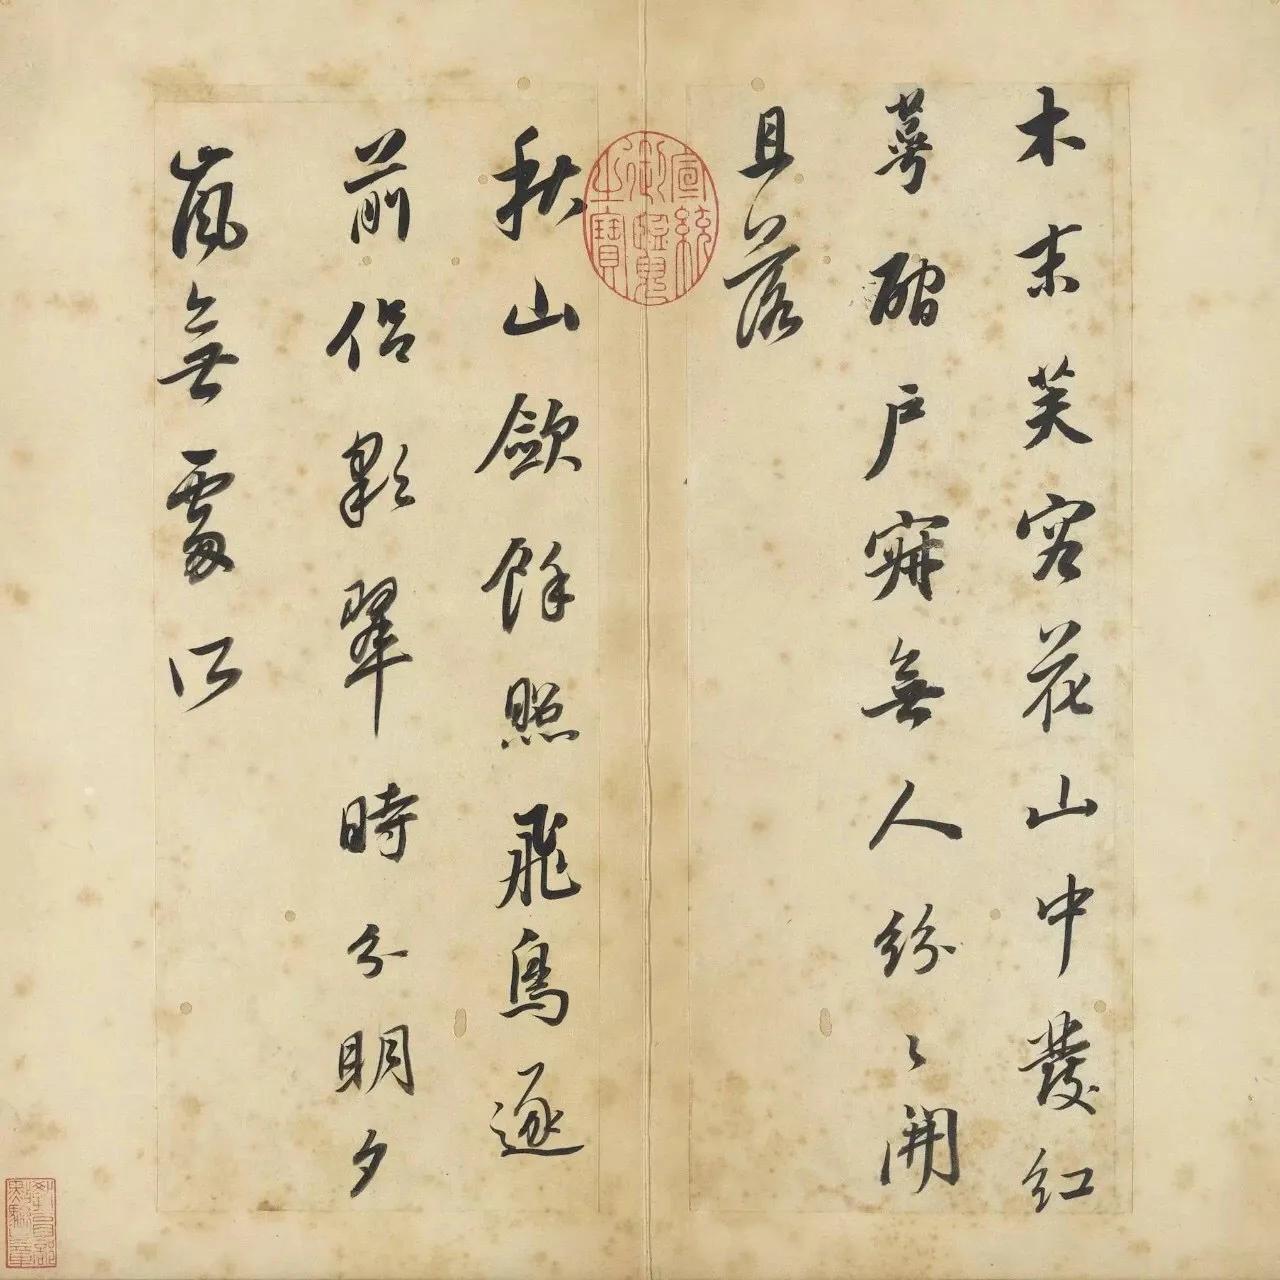 木末芙容花山中發紅
萼磵戶寂無人紛々開
且落
宣統御覽之寶
秋山歛餘照飛鳥逐
前侶彩翠時分明夕
嵐無處所